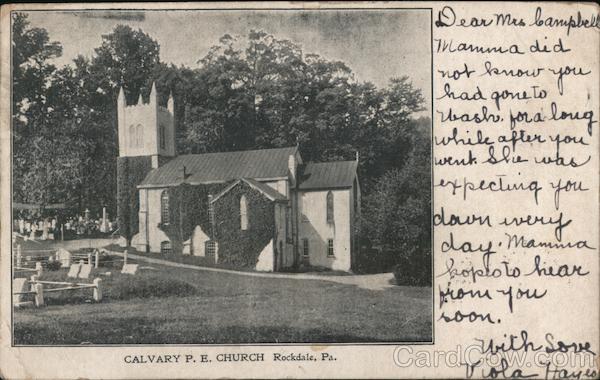 Dear Mrs Campbell
Mamma did
not know you
had gone to
Wash. for a long
while after you
went She was
expecting you
down every
day. Mamma
hopes to hear
from you
soon.
With Love
Viola Hayes
CALVARY P. E. CHURCH Rockdale, Pa.
CardCow.com